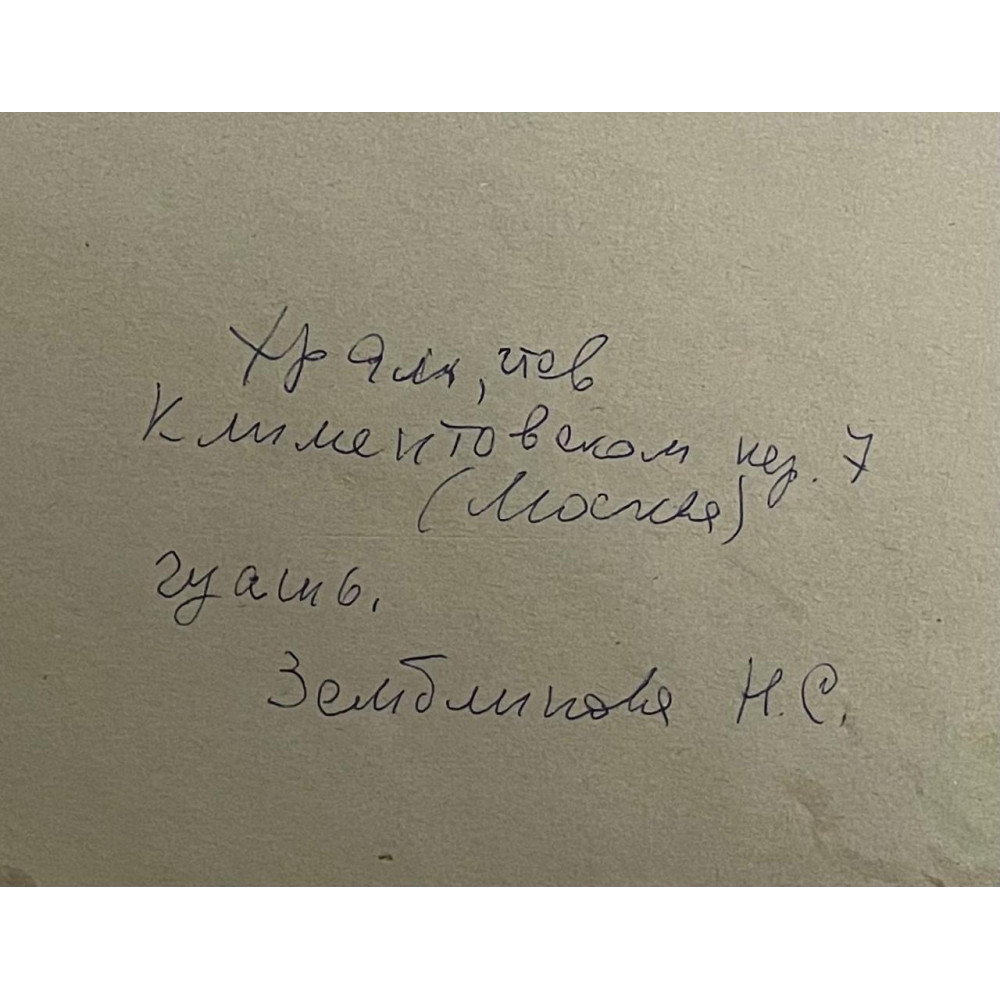 Храм, что в
Климентовском пер. 7
(Москва)
гуашь.
Земблинова Н.С.